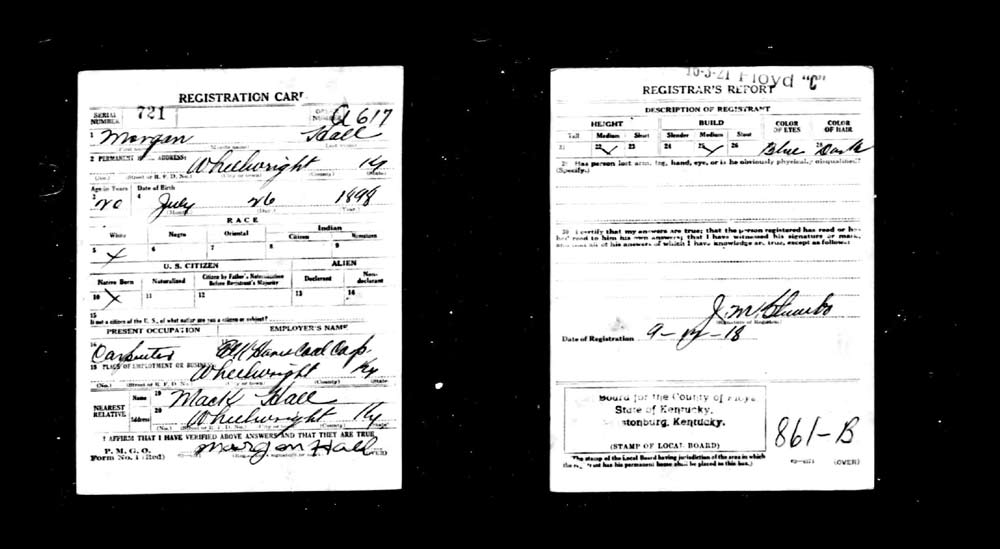 REGISTRATION CARD
SERIAL NUMBER 721
ORDER NUMBER A617
1 Morgan Hall
First name Middle name Last name
2 PERMANENT ADDRESS: Wheelwright Ky
(No.) (Street or R. F. D. No.) (City or town) (County) (State)
Age in Years Date of Birth
3 20 4 July 26 1898
(Month) (Day) (Year)
RACE
White Negro Oriental Indian
Citizen Noncitizen
5 X 6 7 8 9
U. S. CITIZEN ALIEN
Native Born Naturalized Citizen by Father's Naturalization Before Registrant's Majority Declarant Non-declarant
10 X 11 12 13 14
15
If not a citizen of the U. S., of what nation are you a citizen or subject?
PRESENT OCCUPATION EMPLOYER'S NAME
16 Carpenter Coal Corp
18 PLACE OF EMPLOYMENT OR BUSINESS: Wheelwright Ky
(No.) (Street or R. F. D. No.) (City or town) (County) (State)
NEAREST RELATIVE
Name 19 Mack Hall
Address 20 Wheelwright Ky
(No.) (Street or R. F. D. No.) (City or town) (County) (State)
I AFFIRM THAT I HAVE VERIFIED ABOVE ANSWERS AND THAT THEY ARE TRUE
P. M. G. O.
Form No. 1 (Red) Morgan Hall
(Registrant's signature or mark) (OVER)
16-3-21 Floyd "C"
REGISTRAR'S REPORT
DESCRIPTION OF REGISTRANT
HEIGHT BUILD COLOR OF EYES COLOR OF HAIR
Tall Medium Short Slender Medium Stout
21 22 ✓ 23 24 25 ✓ 26 27 Blue 28 Dark
29 Has person lost arm, leg, hand, eye, or is he obviously physically disqualified?
(Specify.)
30 I certify that my answers are true; that the person registered has read or has
had read to him his own answers; that I have witnessed his signature or mark,
and that all of his answers of which I have knowledge are true, except as follows:
J. M.
(Signature of Registrar)
Date of Registration 9-12-18
Board for the County of Floyd
State of Kentucky,
stonburg, Kentucky.
(STAMP OF LOCAL BOARD)
861-B
The stamp of the Local Board having jurisdiction of the area in which
the registrant has his permanent home shall be placed in this box.)
(OVER)